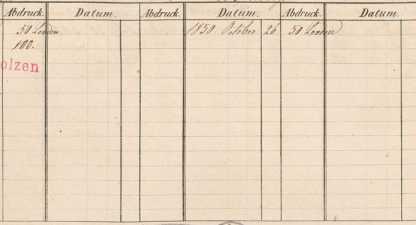 Abdruck. Datum. Abdruck. Datum. Abdruck. Datum.
50 1850 October 26 50
100.
olzen